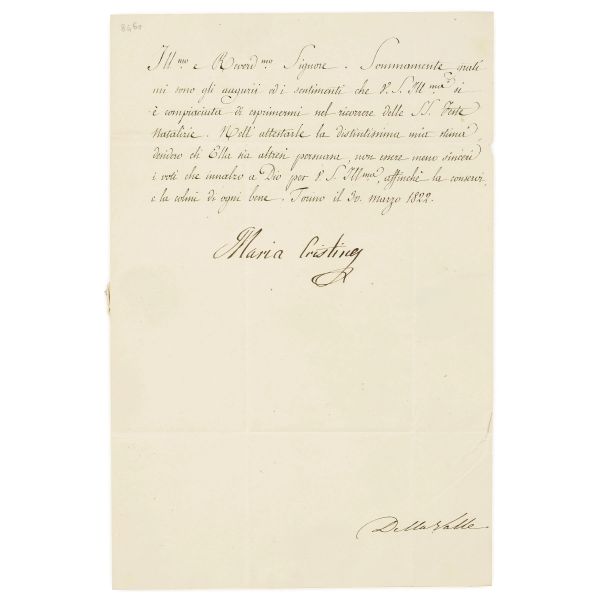 8480
Ill.mo e Reverd.mo Signore. Sommamente grati
mi sono gli augurii ed i sentimenti che V. S. Ill.ma si
è compiaciuta di esprimermi nel ricorrere delle SS. Feste
Natalizie. Nell' attestarle la distintissima mia stima
desidero ch' Ella sia altresì persuasa, non essere meno sinceri
i voti che innalzo a Dio per V. S. Ill.ma, affinchè la conservi,
e la colmi di ogni bene. Torino il 30. marzo 1822.
Maria Cristina
Della Valle